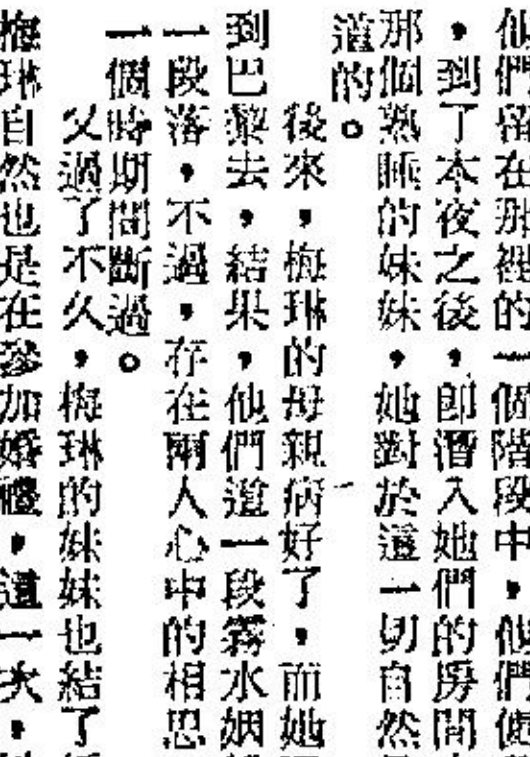 他們留在那裡的一個階段中，他們便
，到了本夜之後，卽潛入她們的房間
那個熟睡的妹妹，她對於這一切自然
道的。
後來，梅琳的母親病好了，而她
到巴黎去，結果，他們這一段霧水姻
一段落，不過，存在兩人心中的相思
一個時期間斷過。
又過了不久，梅琳的妹妹也結了
梅琳自然也是在參加婚禮，這一次，